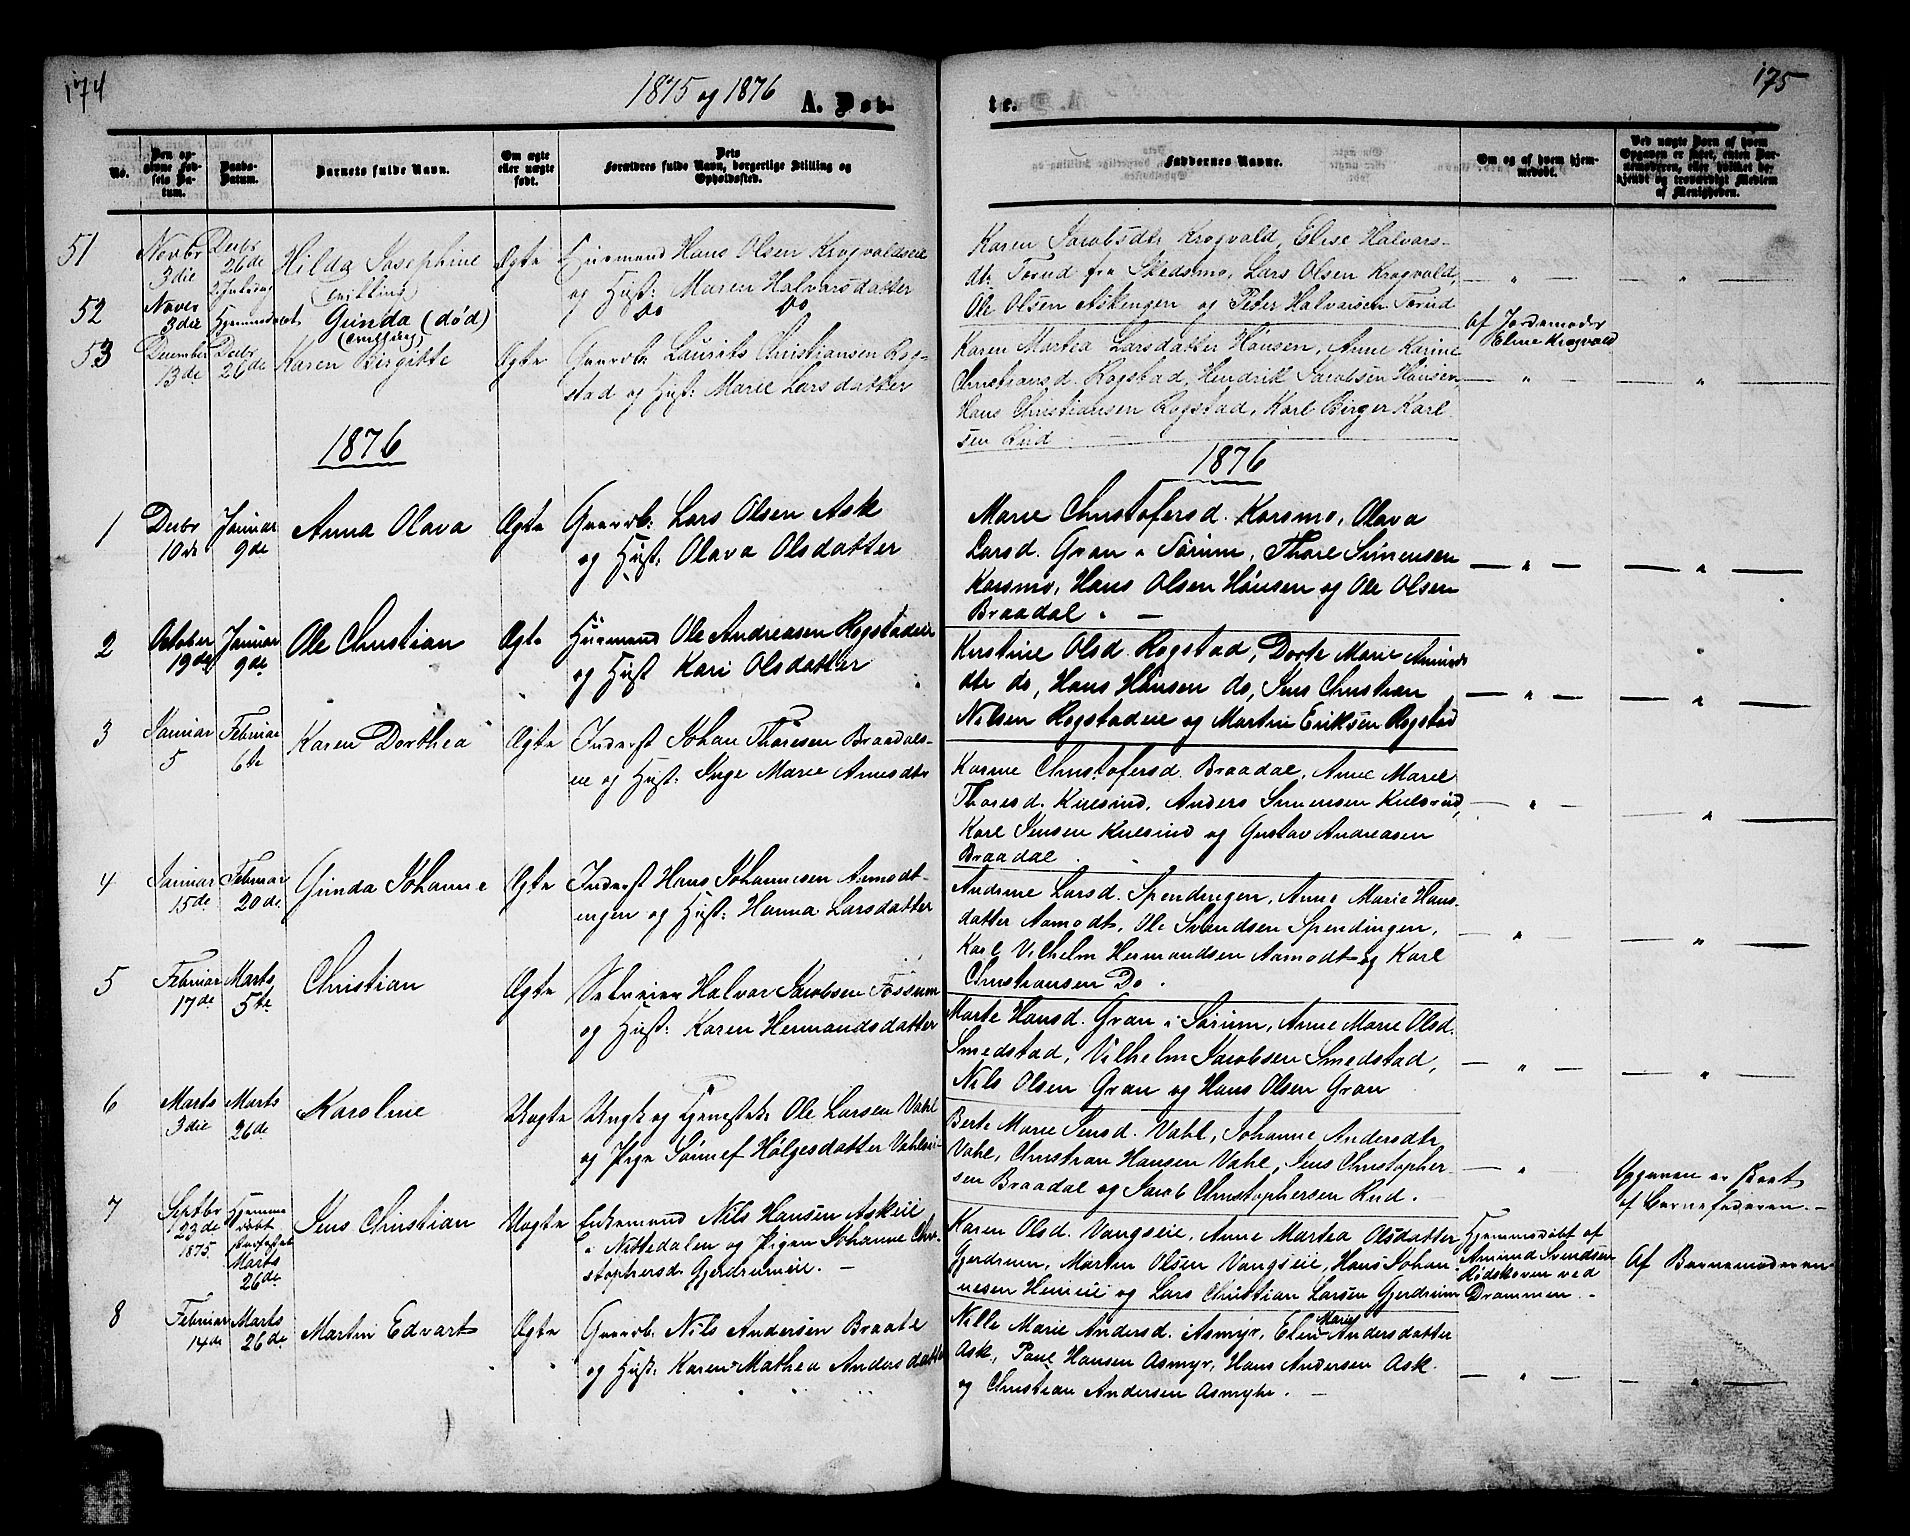 174
1875 og 1876
A. Døb-
No.
Den opgivne Fødsels Datum.
Daabs-Datum.
Barnets fulde Navn.
Om ægte eller uægte født.
Dets Forældres fulde Navn, borgerlige Stilling og Opholdssted.
51
Novbr 3die
Decbr 26de
Hilda Josephine
(tvilling)
Ægte
Huusmand Hans Olsen Krogvaldseie
og Hust: Maren Halvorsdatter
52
Novbr 3die
Hjemmedøbt
Gunda (død)
(tvilling)
Do Do
53
December 13de
Decbr 26de
Karen Birgitte
Ægte
Gaardb. Laurits Christiansen Rog-
stad og Hust: Marie Larsdatter
1876
1
Decbr 10de
Januar 9de
Anna Olava
Ægte
Gaardb: Lars Olsen Ask
og Hust: Olava Olsdatter
2
October 19de
Januar 9de
Ole Christian
Ægte
Huusmand Ole Andreasen Rogstadeie
og Hust Kari Olsdatter
3
Januar 5
Februar 6te
Karen Dorthea
Ægte
Inderst Johan Thoresen Braadals-
eie og Hust: Inge Marie Arnesdtr
4
Januar 15de
Februar 20de
Gunda Johanne
Ægte
Inderst Hans Johannesen Aamodt-
engen og Hust: Hanna Larsdatter
5
Februar 17de
Marts 5te
Christian
Ægte
Selveier Halvor Jacobsen Fossum
og Hust: Karen Hermandsdatter
6
Marts 3die
Marts 26de
Karoline
Uægte
Ungk og Tjenestek: Ole Larsen Vahl
og Pige Sønnef Hølgesdatter Vahleie
7
Septbr 23de 1875
Hjemmedøbt
Marts 26de
Jens Christian
Uægte
Enkemand Nils Hansen Askeie
i Nittedalen og Pigen Johanne Chri-
stophersd. Gjerdrumeie. —
8
Februar 14de
Marts 26de
Martin Edvart
Ægte
Gaardb. Nils Andersen Braate
og Hust: Karen Mathea Andersdatter
175
te.
Faddernes Navne.
Om og af hvem hjemmedøbt.
Ved uægte Børn af hvem Opgaven er skeet, enten Barnemoderen, eller hvilket bekjendt og troværdigt Medlem af Menigheden.
Karen Jacobsdtr Krogvald, Elise Halvors-
dtr Torud fra Skedsmo, Lars Olsen Krogvald,
Ole Olsen Askengen og Peter Halvorsen Torud
Af Jordemoder
Eline Krogvald
Karen Martea Larsdatter Hønsen, Anne Karine
Christiansd. Rogstad, Hendrik Jacobsen Hønsen,
Hans Christiansen Rogstad, Karl Birger Karl-
sen Rud
1876
Marie Christofersd. Korsmo, Olava
Larsd. Gran i Sørum, Thore Simensen
Korsmo, Hans Olsen Hønsen og Ole Olsen
Braadal. —
Kirstine Olsd. Rogstad, Dorte Marie Amunds
dtr do, Hans Hansen do, Jens Christian
Nilsen Rogstadeie og Martin Eriksen Rogstad
Karine Christofersd. Braadal, Anne Marie
Thoresd. Kulsrud, Anders Simensen Kulsrud,
Karl Jensen Kulsrud og Gustav Andreasen
Braadal.
Andrine Larsd. Spendingen, Anne Marie Hans-
datter Aamodt, Ole Svendsen Spendingen,
Karl Vilhelm Hermandsen Aamodt og Karl
Christiansen Do.
Marte Hansd. Gran i Sørum, Anne Marie Olsd.
Smedstad, Vilhelm Jacobsen Smedstad,
Nils Olsen Gran og Hans Olsen Gran
Berte Marie Jensd. Vahl, Johanne Andersdtr
Vahl, Christian Hansen Vahl, Jens Christopher-
sen Braadal og Jacob Christophersen Rud.
Opgaven er skeet
af Barnefaderen. —
Karen Olsd. Vangseie, Anne Martea Olsdatter
Gjerdrum, Martin Olsen Vangseie, Hans Johan-
nesen Heneie og Lars Christian Larsen Gjerdrum
Hjemmedøbt af
Amund Svendsen
Rødskoven ved
Drammen. —
Af Barnemoderen
Nille Marie Andersd. Asmyr, Elen Marie Andersdatter
Ask, Paul Hansen Asmyr, Hans Andersen Ask
og Christian Andersen Asmyhr. —